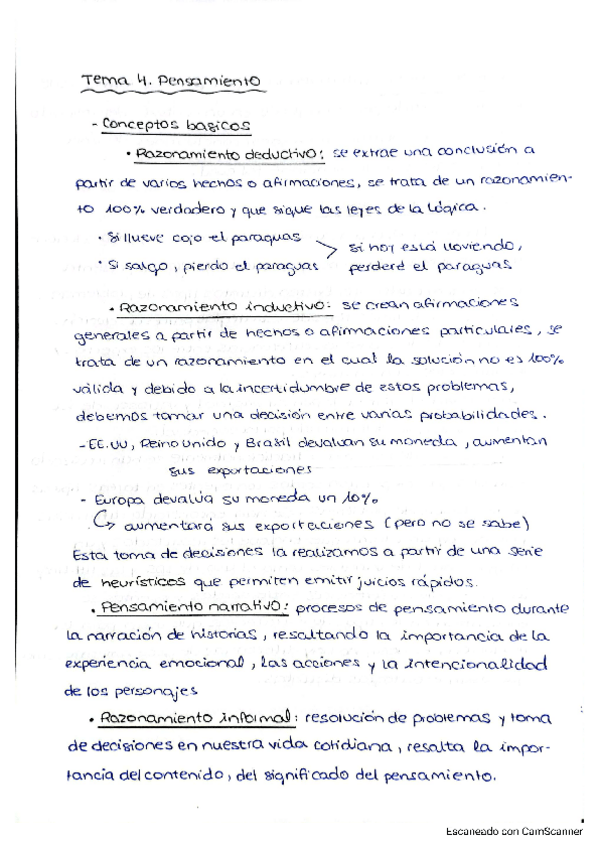 Tema 4. Pensamiento
- Conceptos basicos
• Razonamiento deductivo: se extrae una conclusión a
partir de varios hechos o afirmaciones, se trata de un razonamien-
to 100% verdadero y que sigue las leyes de la lógica.
• Si llueve cojo el paraguas
• Si salgo, pierdo el paraguas
si hoy está lloviendo,
perderé el paraguas
• Razonamiento inductivo: se crean afirmaciones
generales a partir de hechos o afirmaciones particulares, se
trata de un razonamiento en el cual la solución no es 100%
válida y debido a la incertidumbre de estos problemas,
debemos tomar una decisión entre varias probabilidades.
- EE.UU, Reino unido y Brasil devaluan su moneda, aumentan
sus exportaciones
- Europa devalúa su moneda un 10%
↳ aumentará sus exportaciones (pero no se sabe)
Esta toma de decisiones la realizamos a partir de una serie
de heurísticos que permiten emitir juicios rápidos.
• Pensamiento narrativo: procesos de pensamiento durante
la narración de historias, resaltando la importancia de la
experiencia emocional, las acciones y la intencionalidad
de los personajes
• Razonamiento informal: resolución de problemas y toma
de decisiones en nuestra vida cotidiana, resalta la impor-
tancia del contenido, del significado del pensamiento.
Escaneado con CamScanner